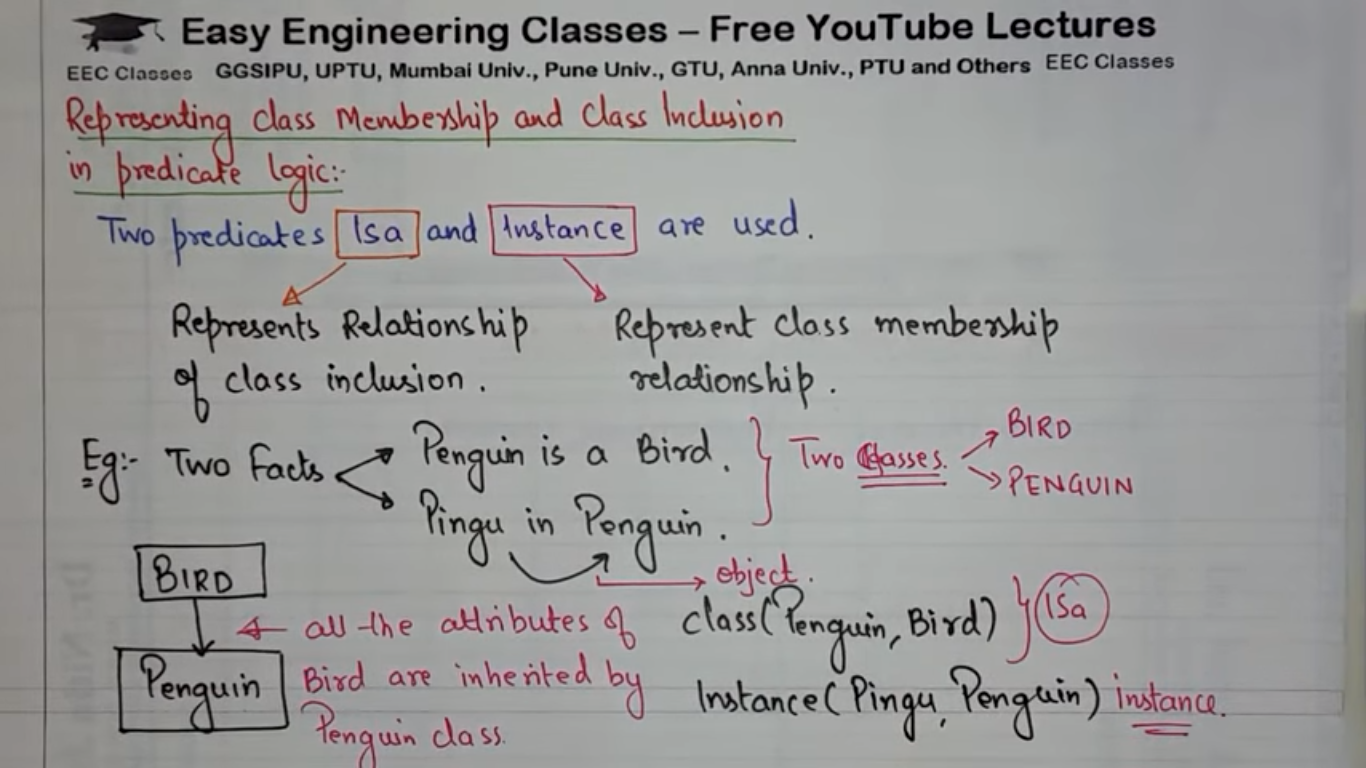 Easy Engineering Classes – Free YouTube Lectures
EEC Classes GGSIPU, UPTU, Mumbai Univ., Pune Univ., GTU, Anna Univ., PTU and Others EEC Classes
Representing class Membership and Class Inclusion
in predicate logic:-
Two predicates Isa and Instance are used.
Represents Relationship
of class inclusion.
Represent class membership
relationship.
Eg:- Two Facts
Penguin is a Bird.
Pingu in Penguin.
Two Classes.
BIRD
PENGUIN
object.
BIRD
Penguin
all the attributes of
Bird are inherited by
Penguin class.
class(Penguin, Bird) Isa
Instance(Pingu, Penguin) instance.